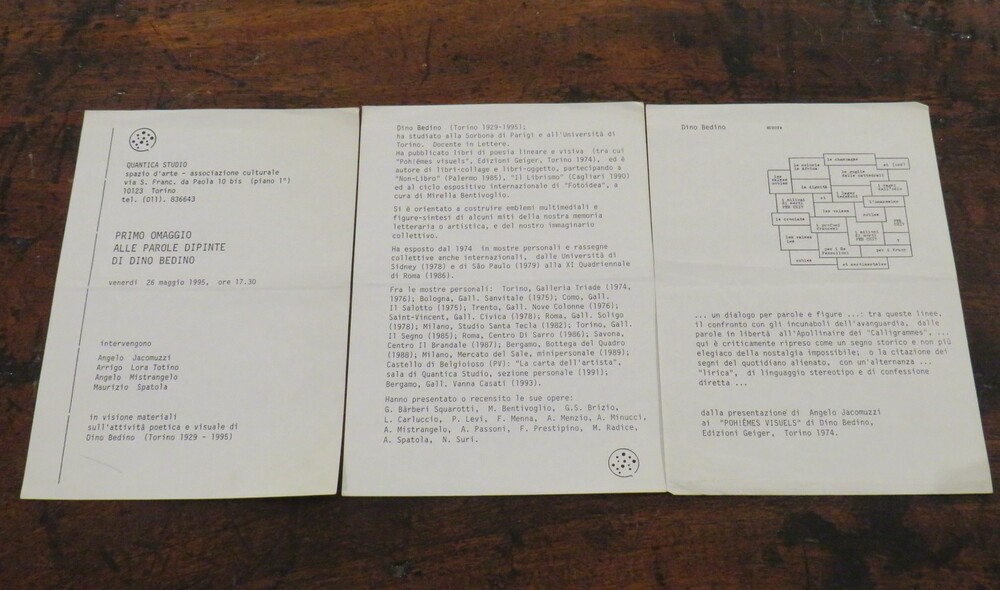 QUANTICA STUDIO
spazio d'arte - associazione culturale
via S. Franc. da Paola 10 bis (piano 1°)
10123 Torino
tel. (011). 836643
PRIMO OMAGGIO
ALLE PAROLE DIPINTE
DI DINO BEDINO
venerdì 26 maggio 1995, ore 17.30
intervengono
Angelo Jacomuzzi
Arrigo Lora Totino
Angelo Mistrangelo
Maurizio Spatola
in visione materiali
sull'attività poetica e visuale di
Dino Bedino (Torino 1929 - 1995)
Dino Bedino (Torino 1929-1995);
ha studiato alla Sorbona di Parigi e all'Università di
Torino. Docente in Lettere.
Ha pubblicato libri di poesia lineare e visiva (tra cui
"Pohièmes visuels", Edizioni Geiger, Torino 1974), ed è
autore di libri-collage e libri-oggetto, partecipando a
"Non-Libro" (Palermo 1985), "Il Librismo" (Cagliari 1990)
ed al ciclo espositivo internazionale di "Fotoidea", a
cura di Mirella Bentivoglio.
Si è orientato a costruire emblemi multimediali e
figure-sintesi di alcuni miti della nostra memoria
letteraria o artistica, e del nostro immaginario
collettivo.
Ha esposto dal 1974 in mostre personali e rassegne
collettive anche internazionali, dalle Università di
Sidney (1978) e di São Paulo (1979) alla XI Quadriennale
di Roma (1986).
Fra le mostre personali: Torino, Galleria Triade (1974,
1976); Bologna, Gall. Sanvitale (1975); Como, Gall.
Il Salotto (1975); Trento, Gall. Nove Colonne (1976);
Saint-Vincent, Gall. Civica (1978); Roma, Gall. Soligo
(1978); Milano, Studio Santa Tecla (1982); Torino, Gall.
Il Segno (1985); Roma, Centro Di Sarro (1986); Savona,
Centro Il Brandale (1987); Bergamo, Bottega del Quadro
(1988); Milano, Mercato del Sale, minipersonale (1989);
Castello di Belgioioso (PV): "La carta dell'artista",
sala di Quantica Studio, sezione personale (1991);
Bergamo, Gall. Vanna Casati (1993).
Hanno presentato o recensito le sue opere:
G. Bàrberi Squarotti, M. Bentivoglio, G.S. Brizio,
L. Carluccio, P. Levi, F. Menna, A. Menzio, A. Minucci,
A. Mistrangelo, A. Passoni, F. Prestipino, M. Radice,
A. Spatola, N. Suri.
Dino Bedino
le dignità
les valses
... un dialogo per parole e figure ...: tra queste linee,
il confronto con gli incunaboli dell'avanguardia, dalle
parole in libertà all'Apollinaire dei "Calligrammes", ...
qui è criticamente ripreso come un segno storico e non più
elegiaco della nostalgia impossibile; o la citazione dei
segni del quotidiano alienato, con un'alternanza ...
"lirica", di linguaggio stereotipo e di confessione
diretta ...
dalla presentazione di Angelo Jacomuzzi
ai "POHIÈMES VISUELS" di Dino Bedino,
Edizioni Geiger, Torino 1974.